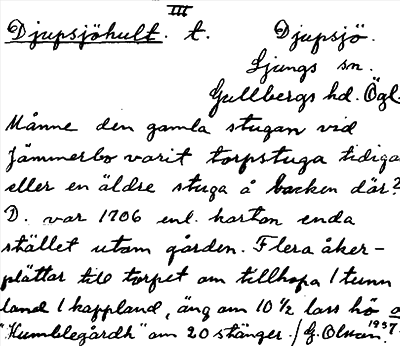 III
Djupsjöhult. t. Djupsjö.
Ljungs sn.
Gullbergs hd. Ögl.
Månne den gamla stugan vid
Jämmerbo varit torpstuga tidiga
eller en äldre stuga å backen där?
D. var 1706 enl. kartan enda
stället utom gården. Flera åker-
plättar till torpet om tillhopa 1 tunn
land 1 kappland, äng om 10 ½ lass hö o
"Humblegårdh" om 20 stänger. / G. Olson 1937.